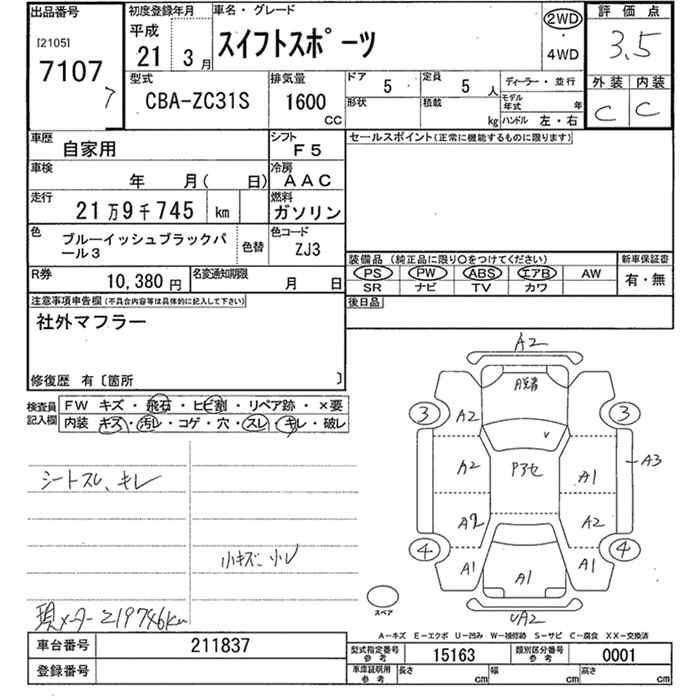 出品番号 初度登録年月 車名・グレード 2WD・4WD 評価点
[2105] 7107 7
平成 21 3月 スイフトスポーツ 3.5
型式 CBA-ZC31S 排気量 1600 CC ドア 5 定員 5 人 ディーラー・並行 外装 内装
形状 積載 kg モデル年式 年 ハンドル 左・右 C C
車歴 自家用 シフト F5 セールスポイント(正常に機能するものに限ります)
車検 年 月( 日) 冷房 AAC
走行 21万9千745 km 燃料 ガソリン
色 ブルーイッシュブラックパール3 色替 色コード ZJ3
装備品 (純正品に限り○をつけてください) 新車保証書
PS PW ABS エアB AW 有・無
SR ナビ TV カワ
R券 10,380円 名変通知期限 月 日
後日品
注意事項申告欄(不具合内容等は具体的に記入して下さい)
社外マフラー
修復歴 有〔箇所 〕
検査員記入欄 FW キズ・飛石・ヒビ割・リペア跡・×要
内装 キズ・汚レ・コゲ・穴・スレ・キレ・破レ
シートスレ、キレ
小キズ、小レ
現メーター 219746km
A2
3 A2 3
A2 Pアセ A1 A3
A2 A2
4 A1 A1 A1 4
スペア UA2
A-キズ E-エクボ U-凹み W-補修跡 S-サビ C-腐食 XX-交換済
車台番号 211837
登録番号
型式指定番号 参考 15163 類別区分番号 参考 0001
車庫証明用 参考 長さ cm 幅 cm 高さ cm